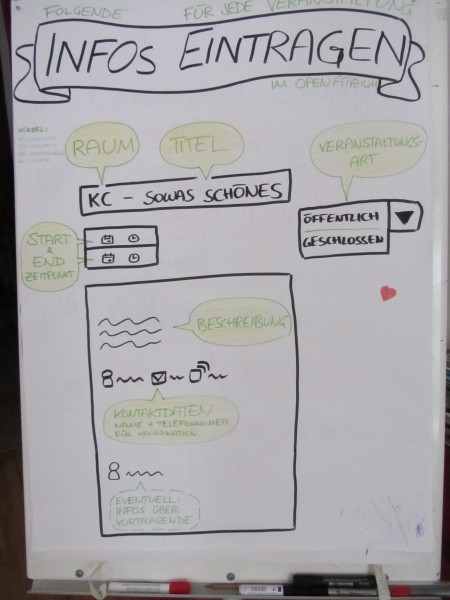 FOLGENDE FÜR JEDE VERANSTALTUNG
INFOS EINTRAGEN
IM OPENATRIUM
KÜRZEL:
RAUM
TITEL
VERANSTALTUNGS-
ART
KC - SOWAS SCHÖNES
ÖFFENTLICH
GESCHLOSSEN
START
&
END
ZEITPUNKT
BESCHREIBUNG
KONTAKTDATEN
NAME + TELEFONNUMMER
FÜR KOORDINATION
EVENTUELL:
INFOS ÜBER
VORTRAGENDE